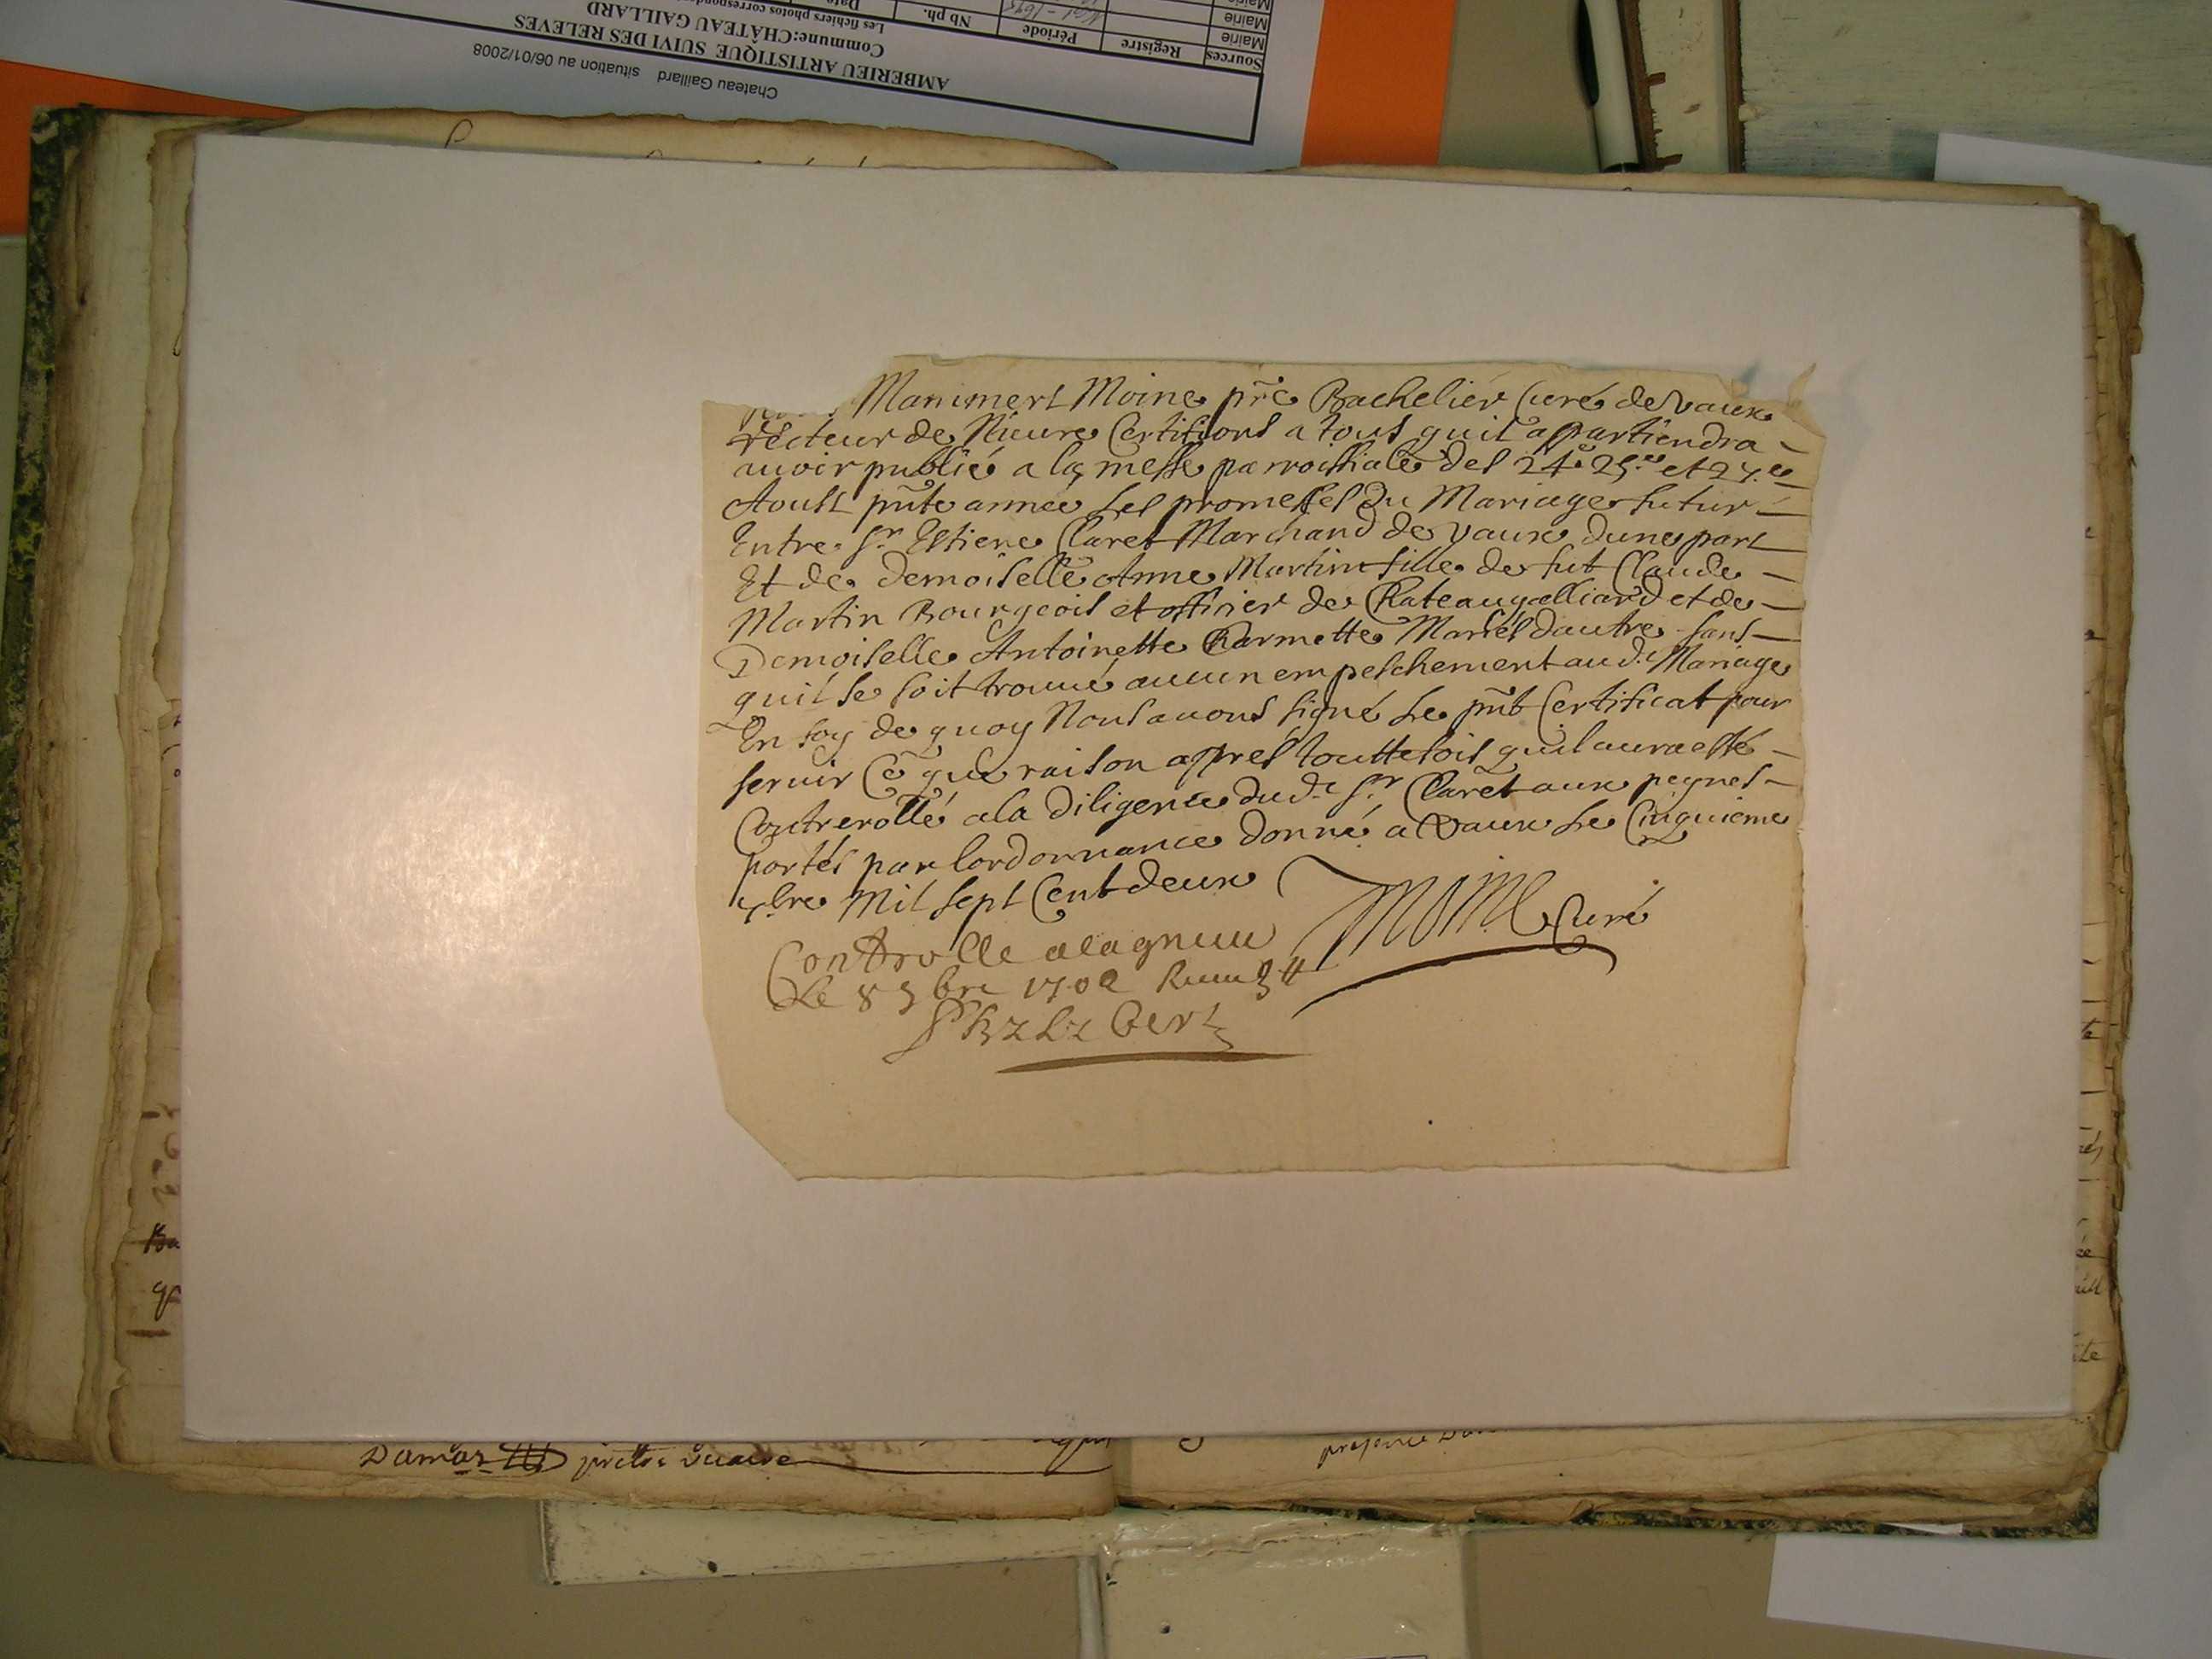 Chateau Gaillard situation au 06/01/2008
AMBERIEU ARTISTIQUE SUIVI DES RELEVES
Commune:CHÂTEAU GAILLARD
Les fichiers photos correspond
Sources Registre Période Nb ph. Date
Mairie
Mairie
Mairie
Moine pr̃e Bachelier Curé de Vaux
recteur de Nieure Certifions a tous quil apartiendra
auoir publié a la messe parroissiale des 24e 25e et 27e
Aoust pñte année Les promesses du Mariage futur
Entre Sr Estiene Claret Marchand de Vaux dune part
Et de Demoiselle Anne Martin fille de fut Claude
Martin Bourgeois et officier de Chateaugalliard et de
Demoiselle Antoinette Charmette Mariés dautre sans
quil se soit trouué aucun empeschement aud. Mariage
En foy de quoy Nous auons signé Le pñt Certificat pour
seruir Ce que raison apres touttefois quil aura esté
Contrerollé a la Diligence dud. Sr Claret aux peynes
portés par lordonnance donné a Vaux Le Cinquieme
7bre Mil sept Cent deux
Moine Curé
Controlle alagnieu
Le 8 1702
Damas prettre Vicaire
presence